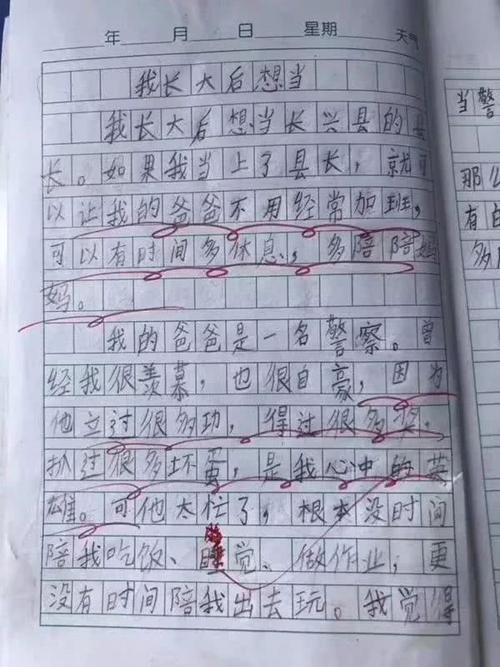 年 月 日 星期 天气
我长大后想当
我长大后想当长兴县的县
长。如果我当上了县长，就可
以让我的爸爸不用经常加班，
可以有时间多休息，多陪陪妈
妈。
我的爸爸是一名警察。曾
经我很羡慕，也很自豪，因为
他立过很多功，得过很多奖。
抓过很多坏蛋，是我心中的英
雄。可他太忙了，根本没时间
陪我吃饭、睡觉、做作业，更
没有时间陪我出去玩。我觉得
当警
那么
有
多